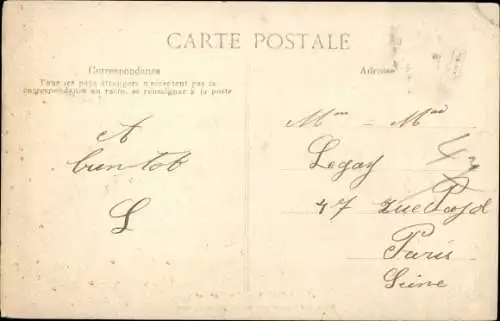 CARTE POSTALE
Correspondance
Tous les pays étrangers n'acceptent pas la
correspondance au recto, se renseigner à la poste
A
bientot
L
Adresse
Mr = Mme
Legay
47
Paris
Seine